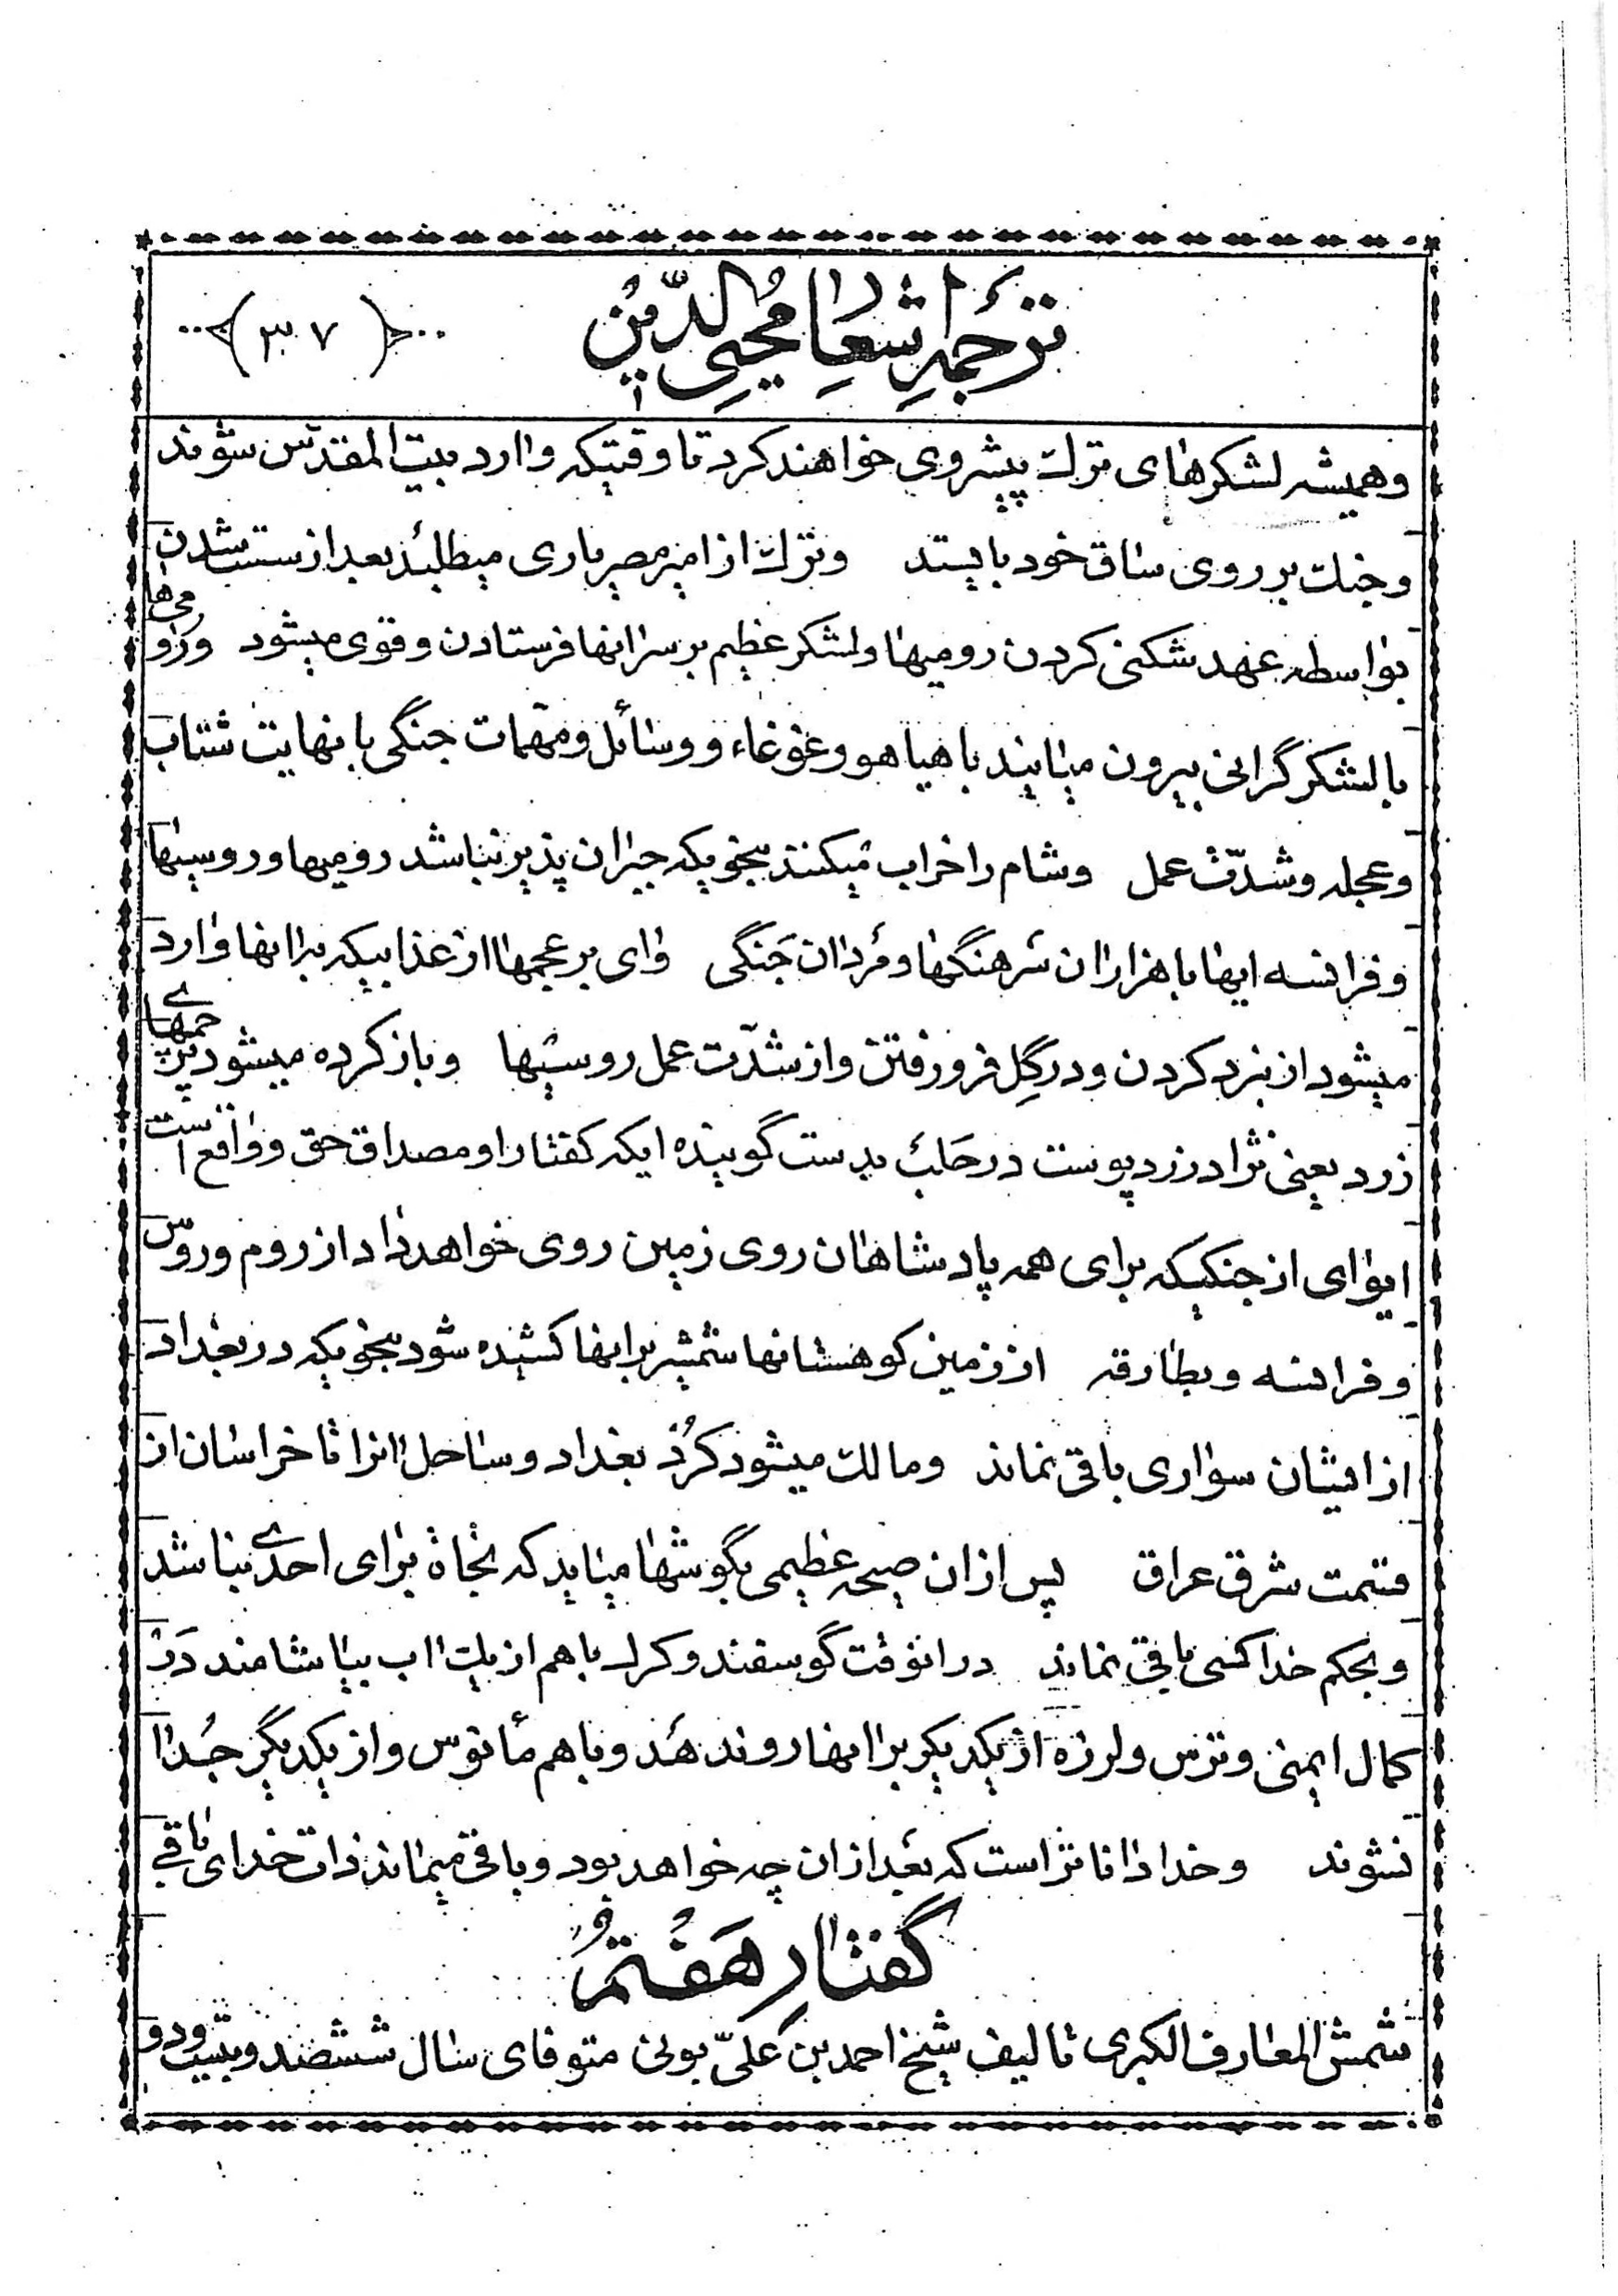 ترجمه اشعار محیی الدین
(۳۰۷)
و همیشه لشکرهای ترک پیشروی خواهند کرد تا وقتیکه وارد بیت المقدس شوند
و جنک بر روی ساق خود بایستد و ترک از امیر مصر یاری میطلبد بعد از سست شدن
بواسطه عهد شکنی کردن رومیها و لشکر عظیم بر سر انها فرستادن و قوی میشود و رومی‌ها
با لشکر گرانی بیرون میایند با هیاهو و غوغاء و وسائل و مهمات جنگی با نهایت شتاب
و عجله و شدّت عمل و شام را خراب میکنند بنحویکه جبران پذیر نباشد رومیها و روسیها
و فرانسه ایها با هزاران سرهنگها و مردان جنگی وای بر عجمها از عذابیکه بر انها وارد
میشود از نبرد کردن و در گِل فرو رفتن و از شدّت عمل روسیها و باز کرده میشود پرچمهای
زرد یعنی نژاد زرد پوست در حلب بدست گوینده ایکه کفتار او مصداق حق و واقع است
ایوای از جنکیکه برای همه پادشاهان روی زمین روی خواهد داد از روم و روس
و فرانسه و بطارقه از زمین کوهستانها شمشیر بر انها کشیده شود بنحویکه در بغداد
از ایشان سواری باقی نماند و مالک میشود کرُد بغداد و ساحل انرا تا خراسان از
قسمت شرق عراق پس از ان صیحه عظیمی بگوشها میاید که نجاة برای احدی نباشد
و بحکم خدا کسی باقی نماند در انوقت گوسفند و کرک با هم از یک اب بیاشامند در
کمال ایمنی و ترس و لرزه از یکدیکر بر انها روند هد و با هم مأنوس و از یکدیگر جُدا
نشوند و خدا داناتر است که بعد از ان چه خواهد بود و باقی میماند ذات خدای باقی
گفتار هفتم
شمس المعارف الکبری تالیف شیخ احمد بن علیّ بونی متوفای سال ششصد و بیست و دو